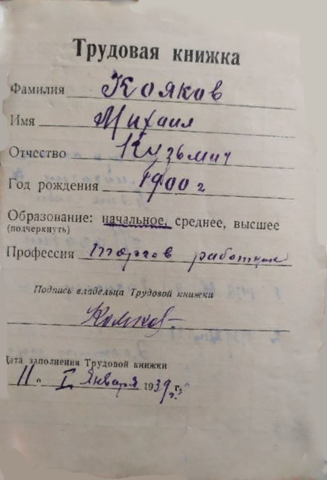 Трудовая книжка
Фамилия Кояков
Имя Михаил
Отчество Кузьмич
Год рождения 1900 г
Образование: начальное, среднее, высшее
(подчеркнуть)
Профессия Торгов работник
Подпись владельца Трудовой книжки
Дата заполнения Трудовой книжки
"11" I Января 1939 г.